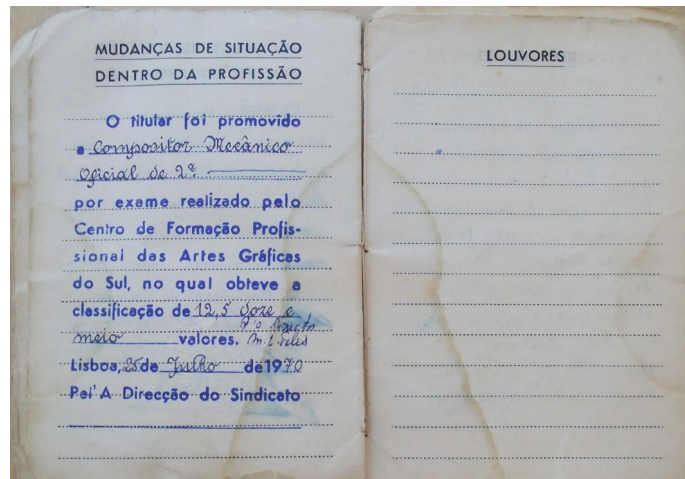 MUDANÇAS DE SITUAÇÃO
DENTRO DA PROFISSÃO
O titular foi promovido
a Compositor Mecânico
Oficial de 2ª
por exame realizado pelo
Centro de Formação Profis-
sional das Artes Gráficas
do Sul, no qual obteve a
classificação de 12,5 doze e
meio valores.
Lisboa, 25 de Julho de 1970
Pel'A Direcção do Sindicato
LOUVORES